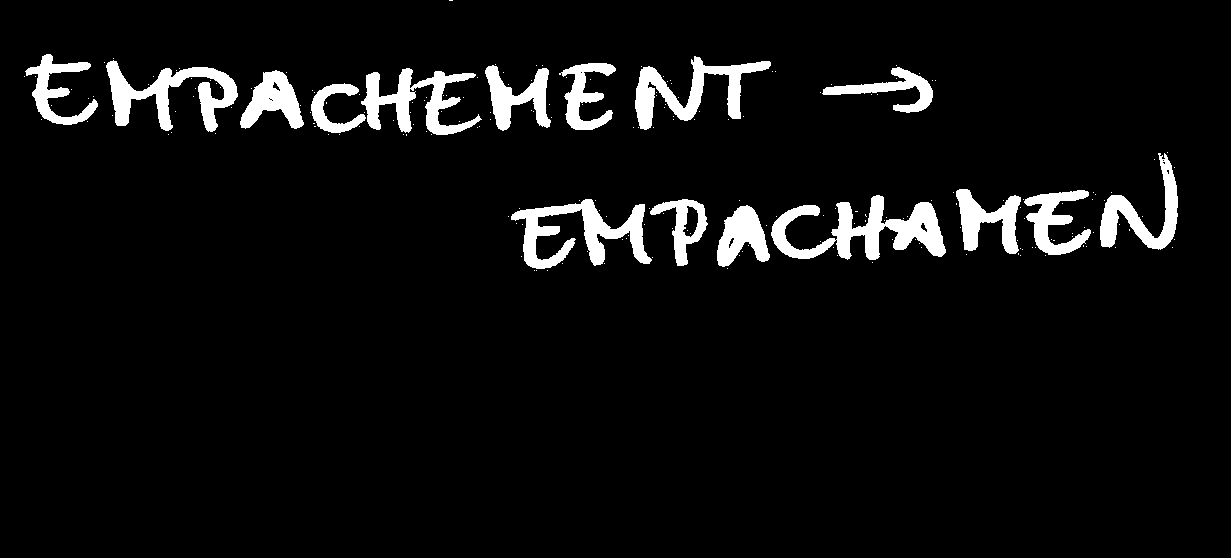 EMPACHEMENT →
EMPACHAMEN